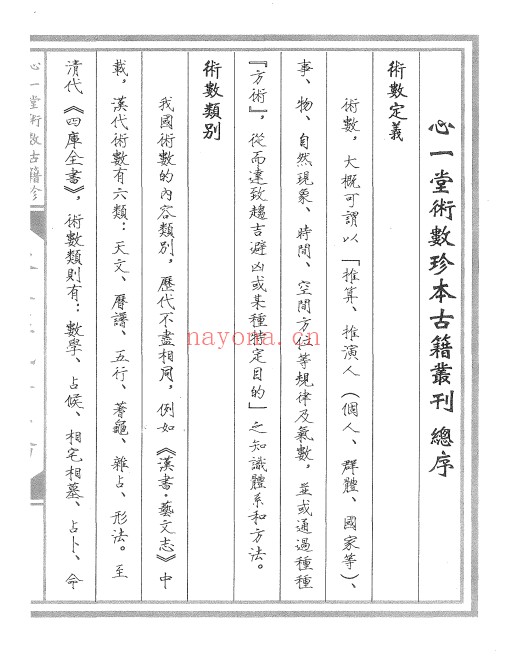 心一堂術數珍本古籍叢刊 總序
術數定義
術數，大概可謂以「推算、推演人（個人、群體、國家等）、
事、物、自然現象、時間、空間方位等規律及氣數，並或通過種種
『方術』，從而達致趨吉避凶或某種特定目的」之知識體系和方法。
術數類別
我國術數的內容類別，歷代不盡相同，例如《漢書·藝文志》中
載，漢代術數有六類：天文、曆譜、五行、蓍龜、雜占、形法。至
清代《四庫全書》，術數類則有：數學、占候、相宅相墓、占卜、命
心一堂術數古籍珍
nayona.cn